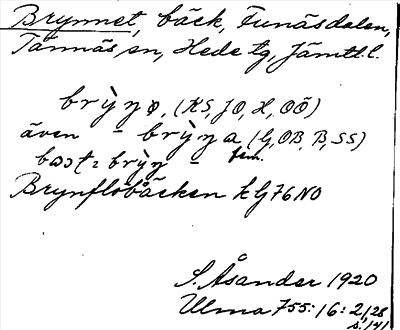 Brynnet, bäck, Funäsdalen,
Tännäs sn, Hede tg, Jämtl. l.
brỳŋø, (KS, JO, H, OÖ)
även - brỳŋa (G, OB, B, SS)
best = brỳŋ - fem.
Brynflobäcken kG76NO
S. Åsander 1920
Ulma 755:16:2,28
s. 141